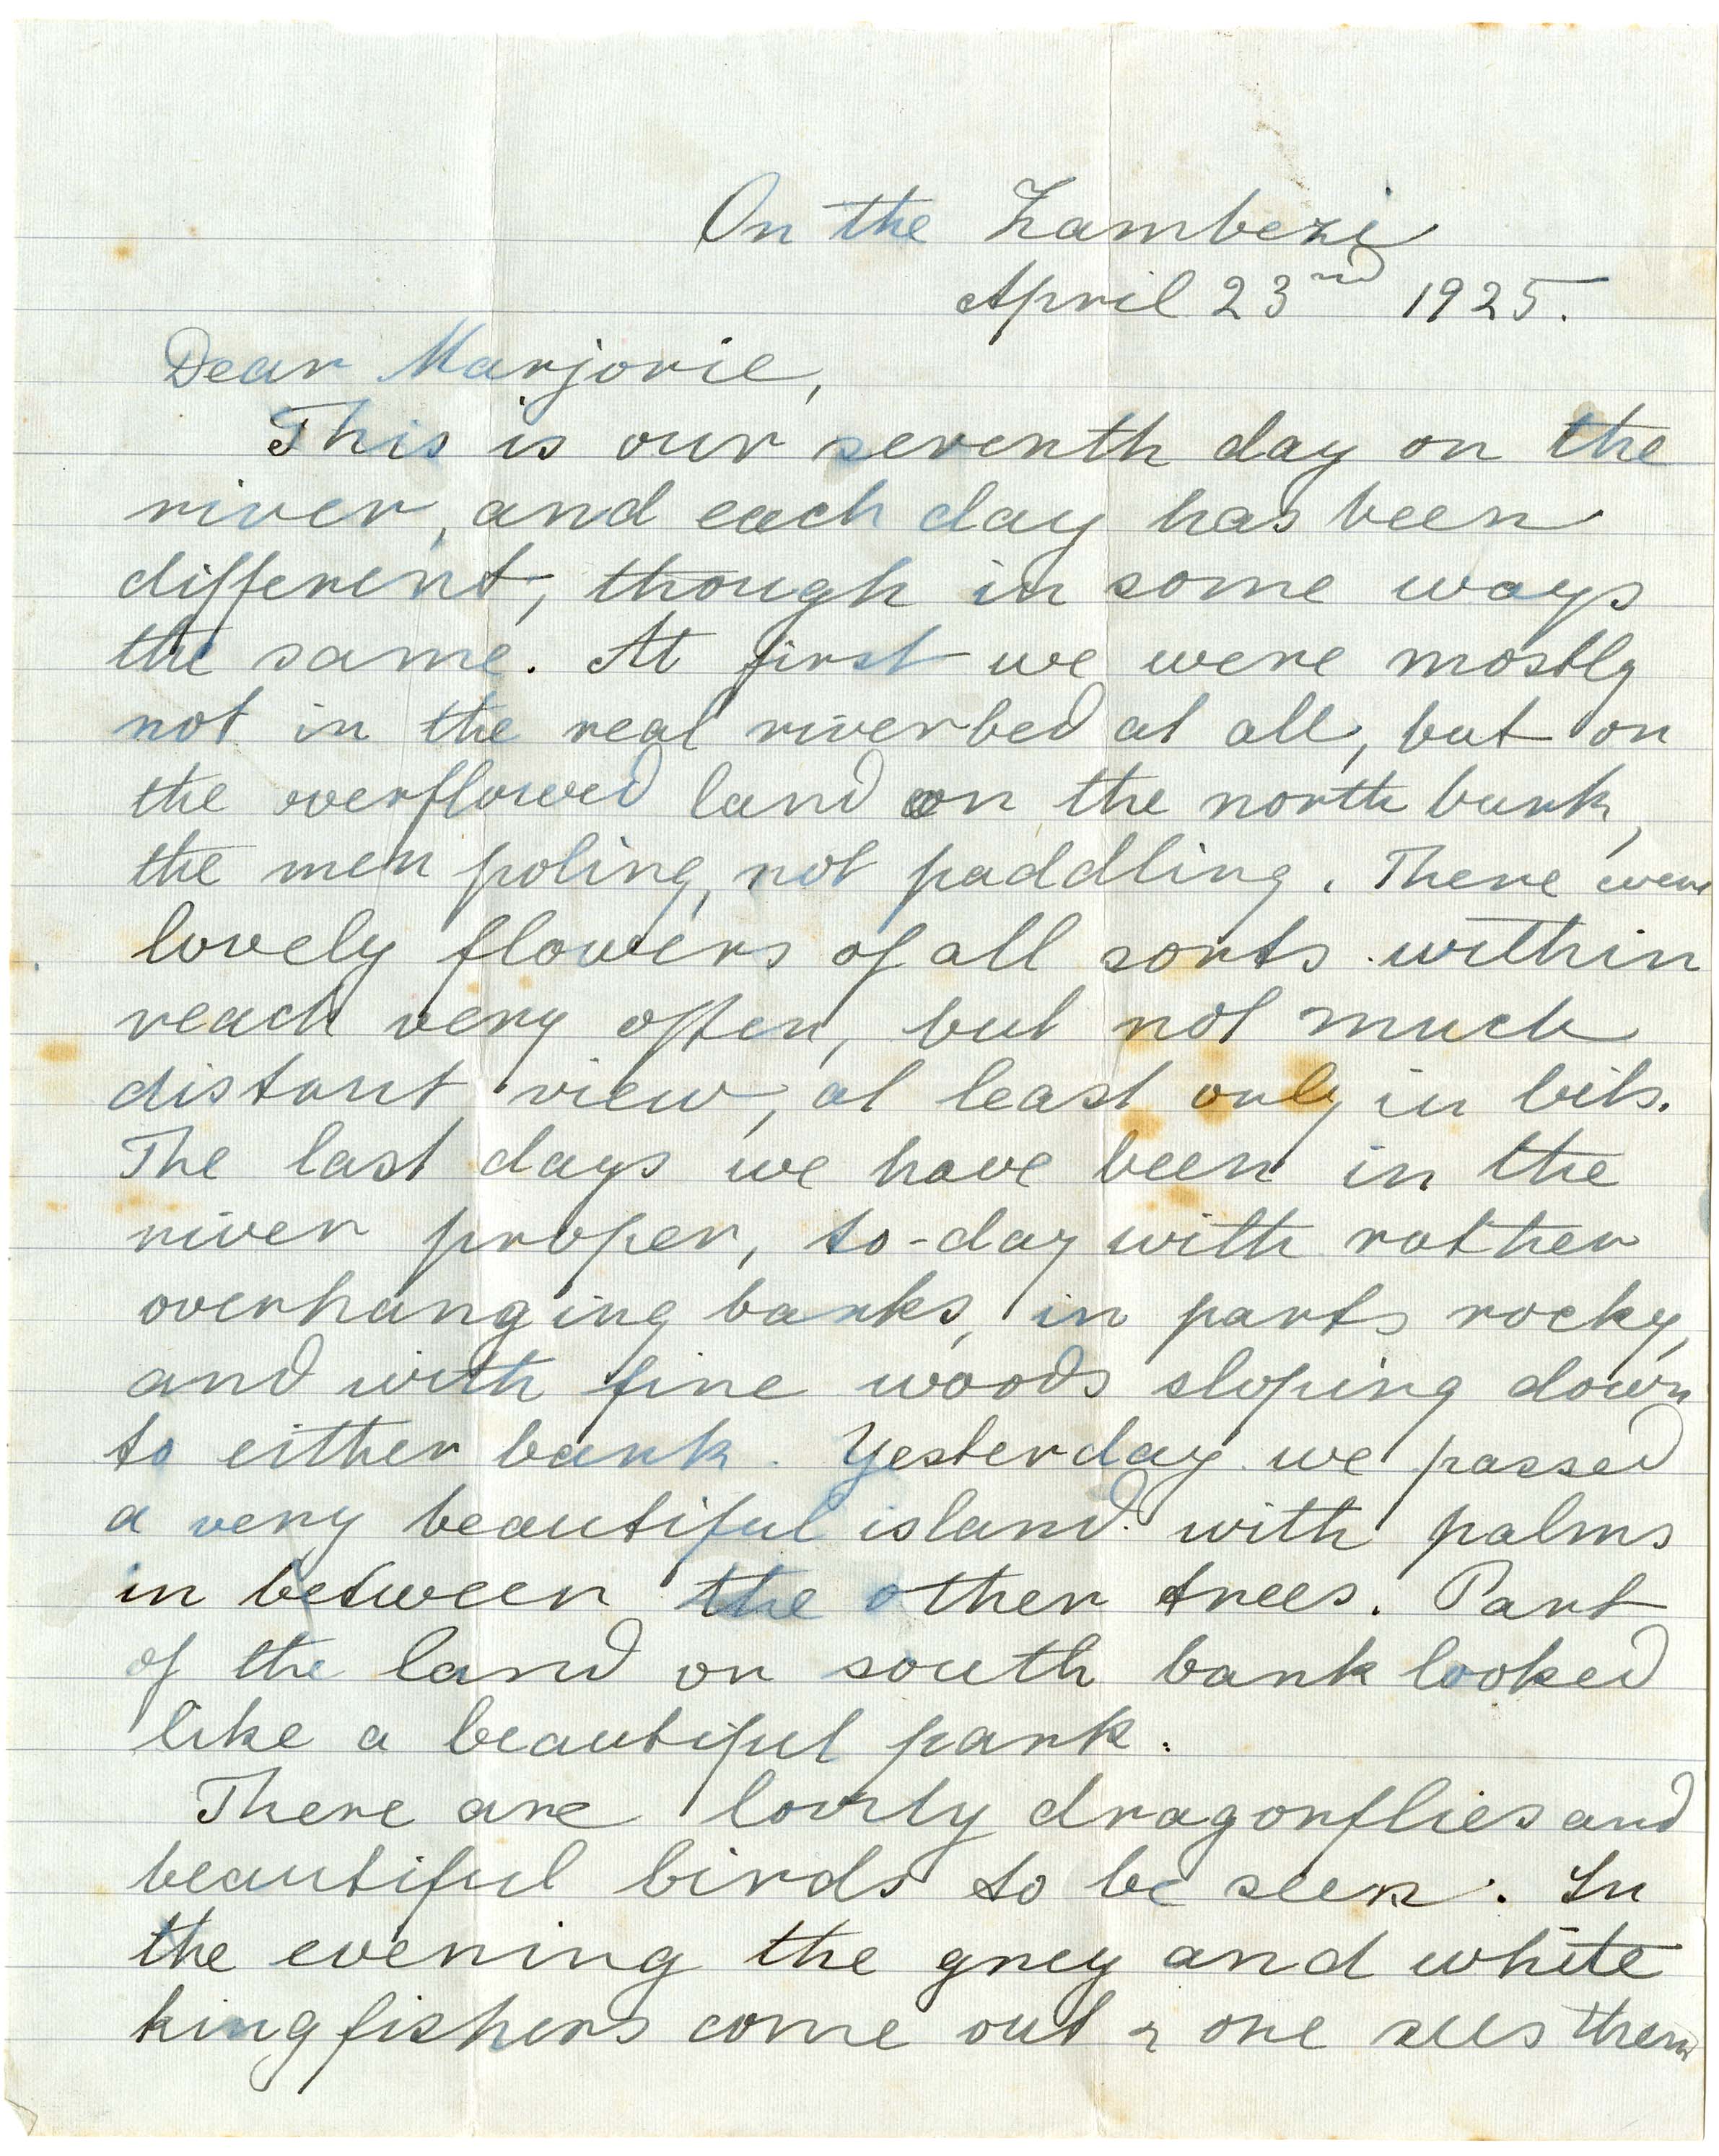 On the Zambezi
April 23nd 1925.
Dear Marjorie,
This is our seventh day on the
river, and each day has been
different, though in some ways
the same. At first we were mostly
not in the real riverbed at all, but on
the overflowed land on the north bank,
the men poling, not paddling. There were
lovely flowers of all sorts within
reach very often, but not much
distant view, at least only in bits.
The last days we have been in the
river proper, to-day with rather
overhanging banks, in parts rocky,
and with fine woods sloping down
to either bank. Yesterday we passed
a very beautiful island with palms
in between the other trees. Part
of the land on south bank looked
like a beautiful park.
There are lovely dragonflies and
beautiful birds to be seen. In
the evening the grey and white
kingfishers come out & one sees them